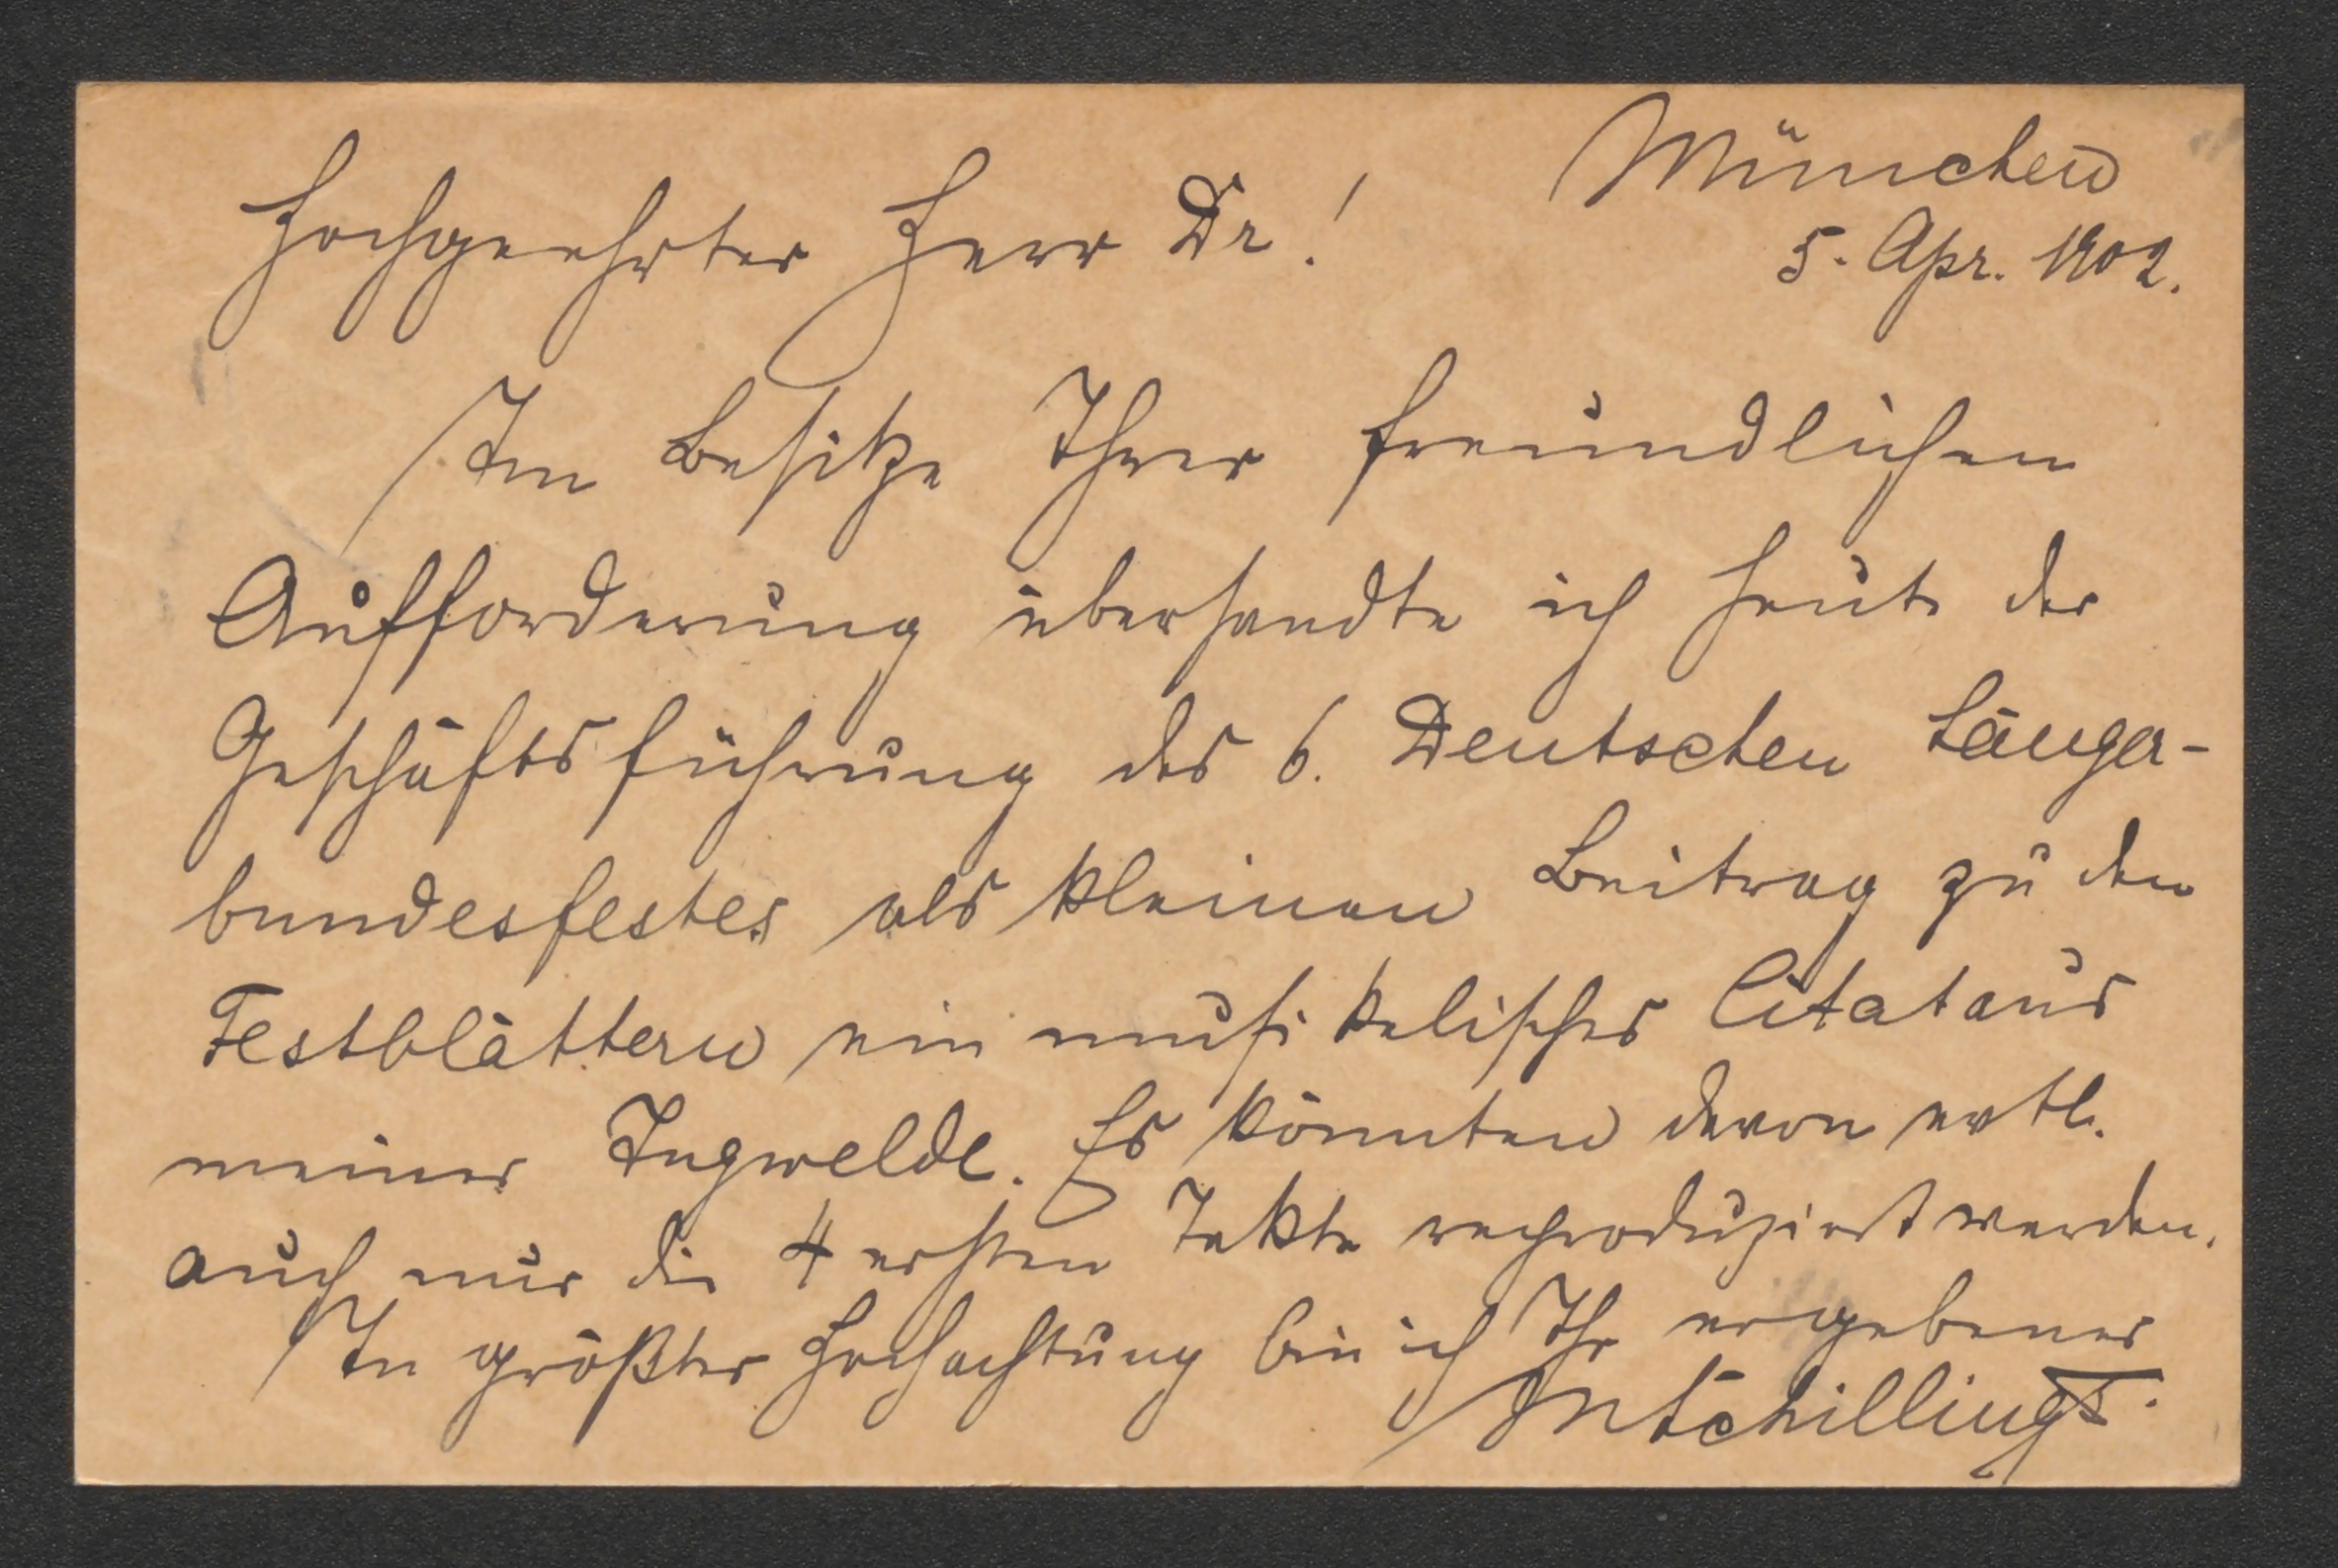 München
5. Apr. 1902.
Hochgeehrter Herr Dr!
Im Besitze Ihrer freundlichen
Aufforderung übersandte ich heute der
Geschäftsführung des 6. Deutschen Sänger-
bundesfestes als kleinen Beitrag zu den
Festblättern ein musikalisches Citat aus
meiner Ingwelde. Es könnten davon evtl.
auch nur die 4 ersten Takte reproduziert werden.
In größter Hochachtung bin ich Ihr ergebener
MSchillings.